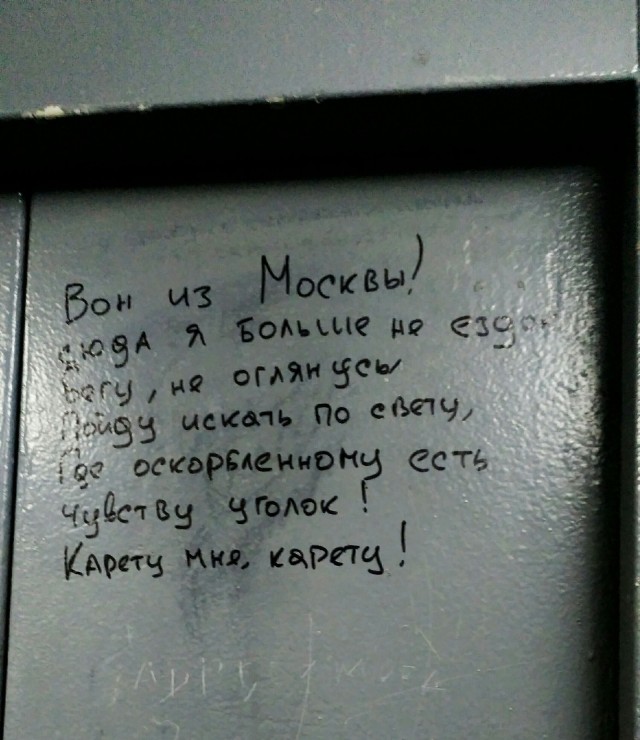 Вон из Москвы!
Сюда я больше не ездок
Бегу, не оглянусь
Пойду искать по свету,
Где оскорбленному есть
чувству уголок!
Карету мне, карету!